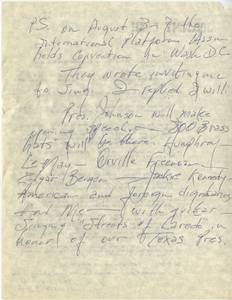 P.S. on August 3-8 the
International Platform Assn
holds convention in Wash D.C.
They wrote inviting me
to sing. I replied I will.
Pres. Johnson will make
speech — 300 Brass
hats will be there. Humphrey —
LeMay — Orville Freeman
Edgar Bergen — Jackie Kennedy —
American and foreign dignitaries
And Me — with guitar —
Singing "Streets of Laredo" in
honor of our Texas Pres.